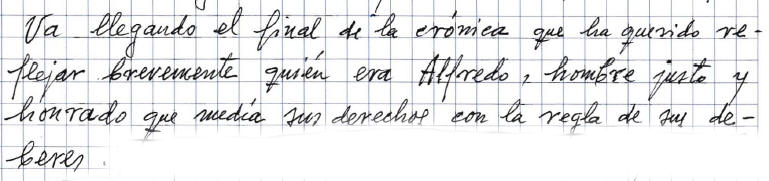 Va llegando el final de la crónica que ha querido re-
flejar brevemente quién era Alfredo, hombre justo y
honrado que medía sus derechos con la regla de sus de-
beres.